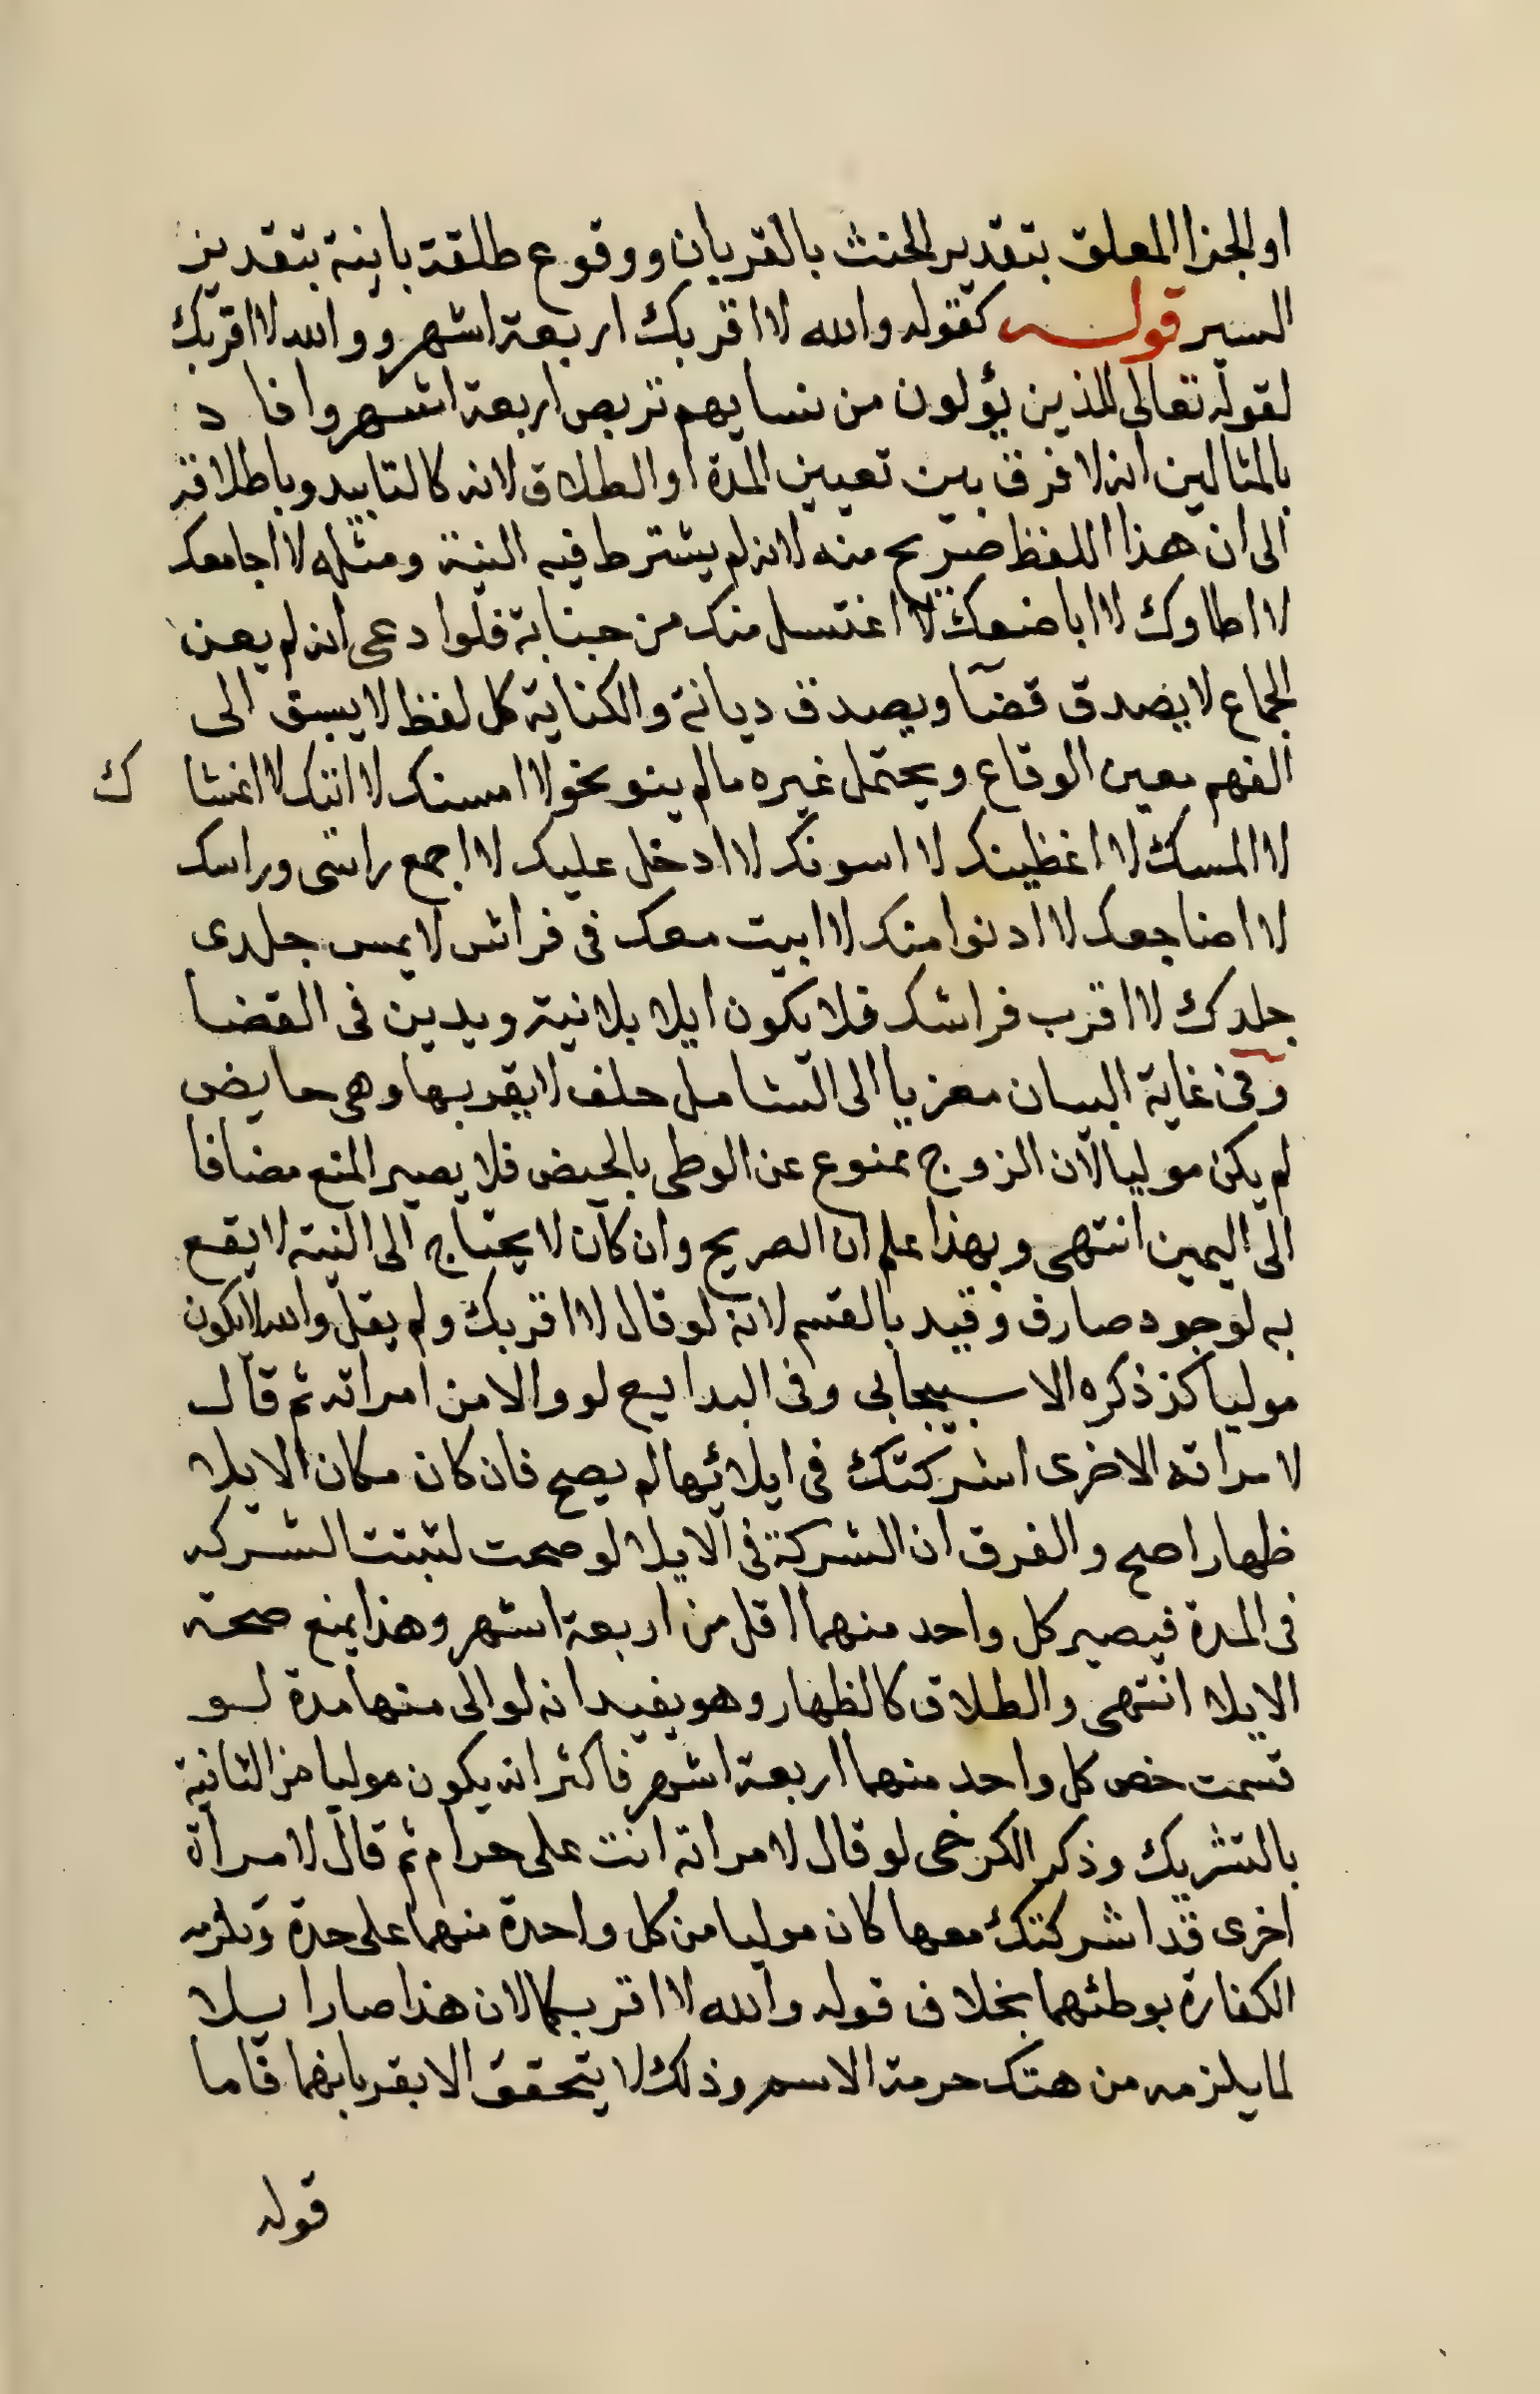 او الجزا المعلق بتقدير الحنث بالقربان ووقوع طلقة باينة بتقدير
البر قوله كقوله والله لا اقربك اربعة اشهر ووالله لا اقربك
لقوله تعالى للذين يؤلون من نسايهم تربص اربعة اشهر وافاد
بالمثالين انه لا فرق بين تعيين المدة او الطلاق لانه كالتابيد وباطلاقه
الى ان هذا اللفظ صريح منه لانه لم يشترط فيه النية ومثله لا اجامعك
لا اطاوك لا اباضعك لا اغتسل منك من جنابة فلو ادعى انه لم يعن
الجماع لا يصدق قضآ ويصدق ديانة والكناية كل لفظ لا يسبق الى
الفهم معين الوقاع ويحتمل غيره ما لم ينو نحو لا امسك لا اتيك لا اغشاك
لا المسك لا اغظينك لا اسونك لا ادخل عليك لا اجمع راسى وراسك
لا اضاجعك لا ادنوا منك لا ابيت معك فى فراش لا يمس جلدى
جلدك لا اقرب فراشك فلا يكون ايلا بلا نية ويدين فى القضا
وفى غاية البيان معزيا الى الشامل حلف لا يقربها وهى حايض
لم يكن موليا لان الزوج ممنوع عن الوطى بالحيض فلا يصير المنع مضافا
الى اليمين انتهى وبهذا علم ان الصريح وان كان لا يحتاج الى النية لا يقع
به لوجود صارف وقيد بالقسم لانه لو قال لا اقربك ولم يقل والله لا يكون
موليا كذ ذكره الاسبيجابى وفى البدايع لو والا من امراته ثم قال
لامراته الاخرى اشركتك فى ايلائها لم يصح فان كان مكان الايلا
ظهارا صح والفرق ان الشركة فى الايلا لو صحت لثبتت الشركه
فى المدة فيصير كل واحد منهما اقل من اربعة اشهر وهذا يمنع صحة
الايلا انتهى والطلاق كالظهار وهو يفيد انه لو الى منها مدة لو
قسمت خص كل واحد منهما اربعة اشهر فاكثر انه يكون موليا من الثانية
بالتشريك وذكر الكرخى لو قال لامراته انت على حرام ثم قال لامراة
اخرى قد اشركتك معها كان موليا من كل واحدة منهما على حدة وتلزمه
الكفارة بوطئهما بخلاف قوله والله لا اقربكما لان هذا صار ايلا
لما يلزمه من هتك حرمة الاسم وذلك لا يتحقق الا بقربانهما فاما
قوله